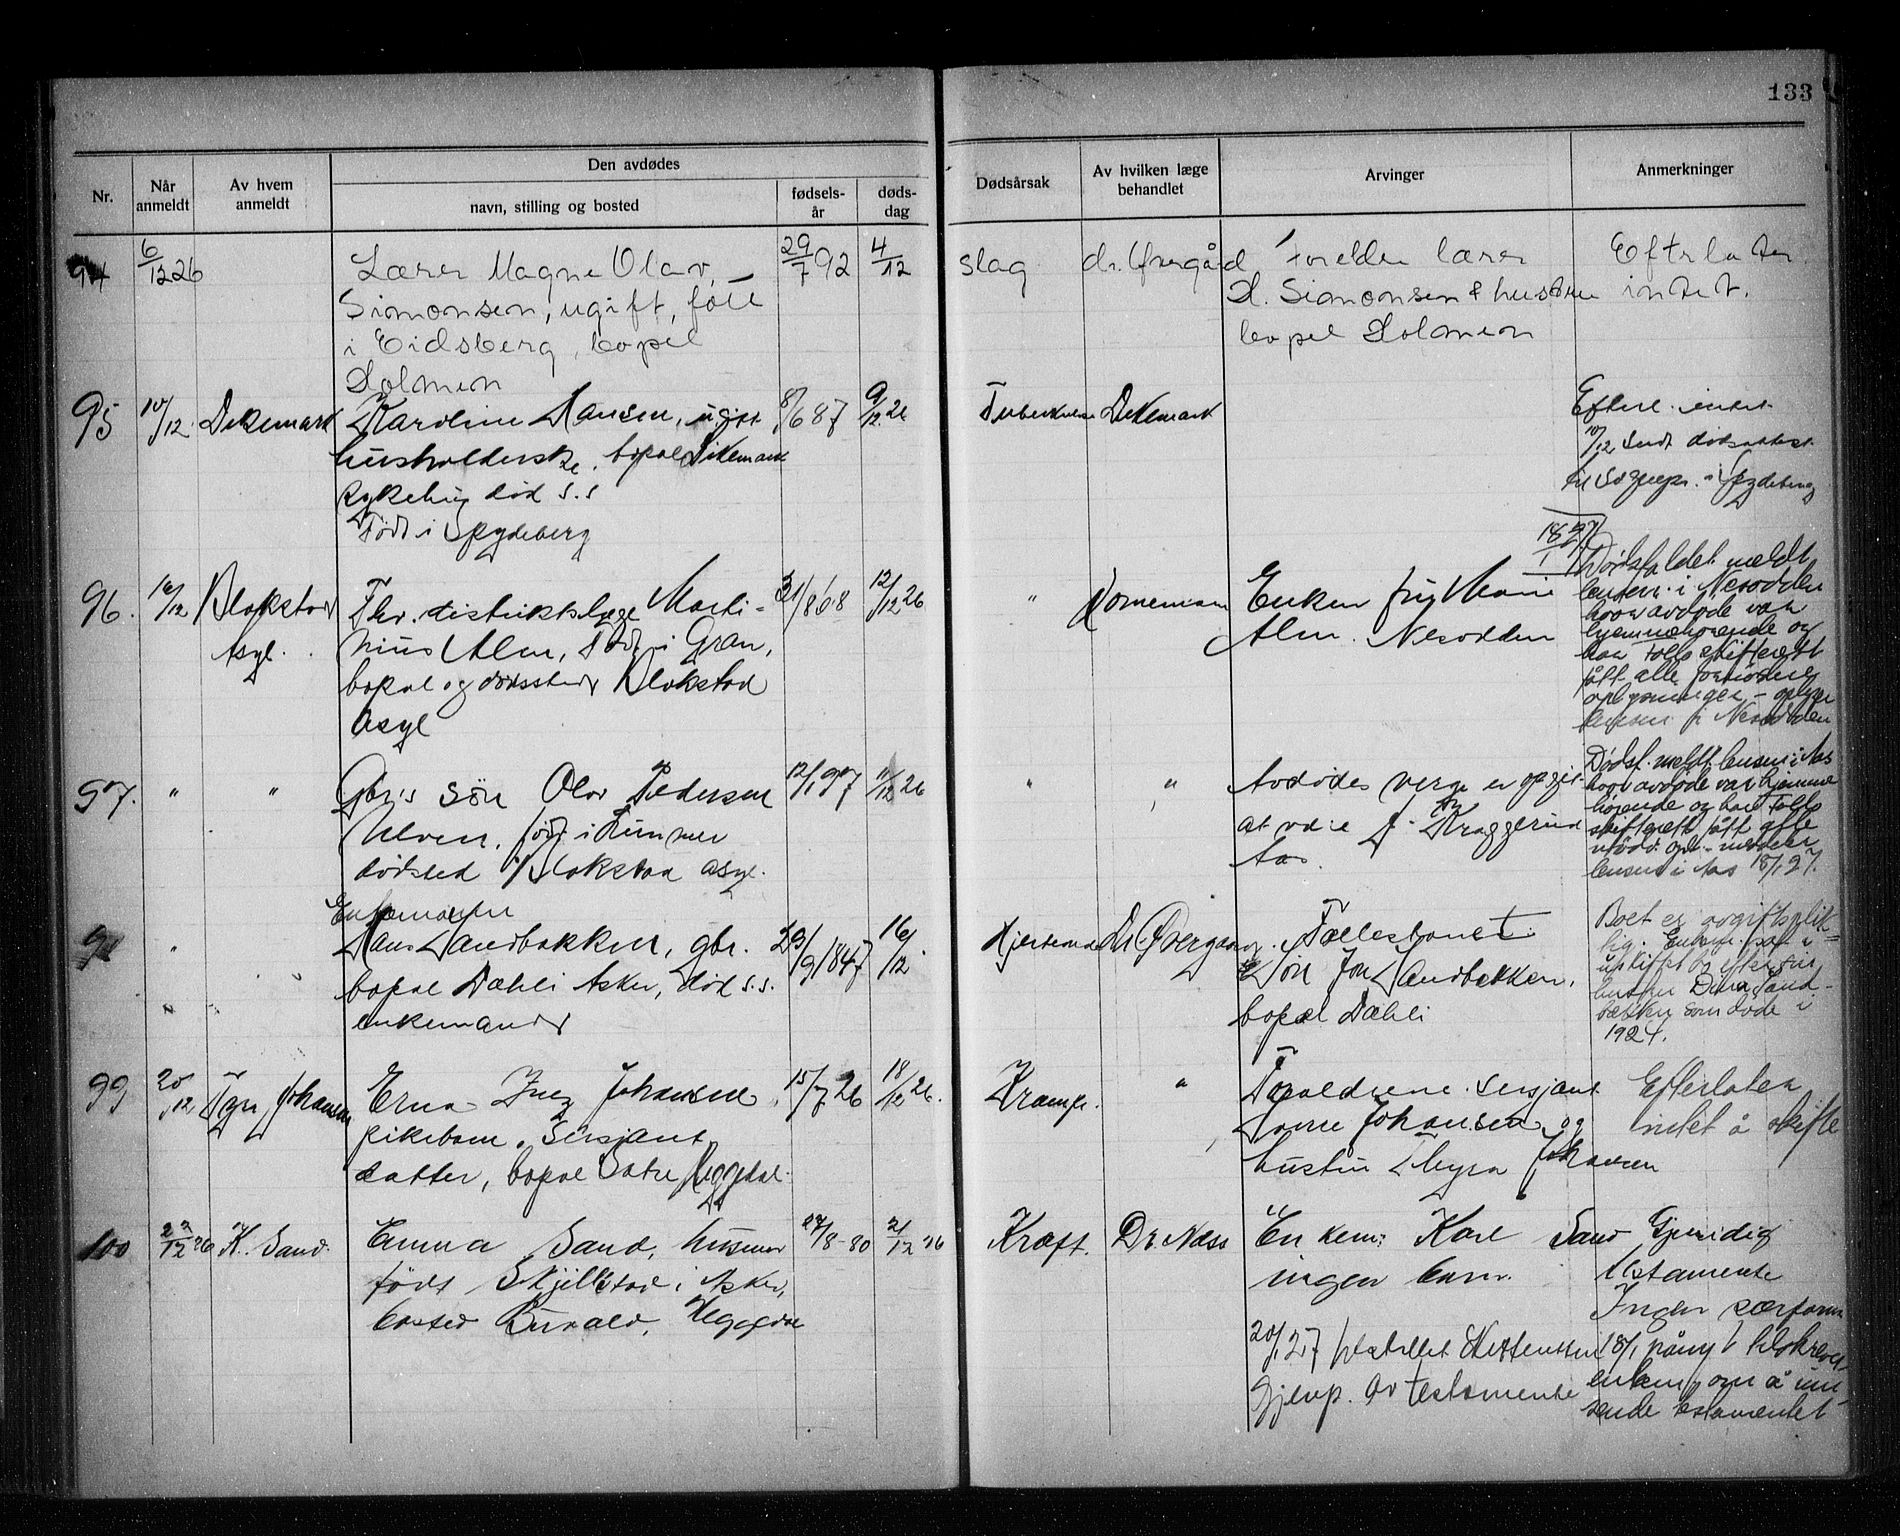 133
Nr.
Når anmeldt
Av hvem anmeldt
Den avdødes
navn, stilling og bosted
fødsels-år
døds-dag
Dødsårsak
Av hvilken læge behandlet
Arvinger
Anmerkninger
94
6/12 26
Lærer Magne Olav
Simonsen, ugift, født
i Eidsberg, bopel
Holmen
29/7 92
4/12
slag
dr.
Foreldre lærer
H. Simonsen & hustru
bopel Holmen
Efterlater
intet.
95
10/12
Dikemark
Karoline Hansen, ugift
husholderske, bopæl Dikemark
sykehus død s.s
Født i Spydeberg
8/6 87
9/12 26
Tuberkulose
Dikemark
Efterl. intet
10/12 sendt dødsattest
til Sognepr. i Spydeberg
96.
Blakstad
Asyl.
Fhv. distriktslæge Marti-
nius Alm, født i Gran,
bopæl og dødssted Blakstad
Asyl
12/12 26
"
Enken fru Marie
Alm. Nesodden
18/1 27
Dødsfaldet meldt
lensm. i Nesodden
hvor avdøde var
hjemmehørende og
har Follo skifterett
fått alle fornødne
oplysninger - oplyser
lensm. i Nesodden
97.
"
"
Gbr.s søn Olav Pedersen
Ulven, født i
dødssted Blakstad asyl.
12/1 97
11/12 26
"
"
Avdødes verge er opgit
at være J. Kraggerud
Aas.
Dødsf. meldt lensm. i Aas
hvor avdøde var hjemme
hørende og har Follo
skifterett fått alle
nødv. opl. - meddeler
lensm. i Aas 18/1 27.
"
Enkemann
Hans Sandbakken, gbr.
bopæl Dæhli Asker, død s.s.
enkemand
23/9 1847
16/12
Dr. Øvergaard
Fællesbonet.
Søn Jon Sandbakken,
bopæl Dæhli
Boet er avgiftsplik-
tig. Enkem. satt i
uskiftet bo efter sin
hustru Dina Sand-
bakken som døde i
1924.
99
20/12
Johansen
Erna Inez Johansen,
pikebarn, Sersjant
datter, bopæl Sætre Heggedal.
15/7 26
18/12 26.
Krampe.
"
Foreldrene Sersjant
Johansen og
hustru Thyra Johansen
Efterlater
intet å skifte
100
22/12 26
K. Sand.
Emma Sand, husmor
født Skjellestad i Asker,
bosted Heggedal
27/8-80
21/12 26
Kreft.
Dr. Næss
Enkem: Karl Sand
ingen barn.
20/1 27
gjenp. av testamente
Gjensidig
testamente
Ingen særformue
18/1 påny tilskrevet
enkem. om å inn
sende testamentet